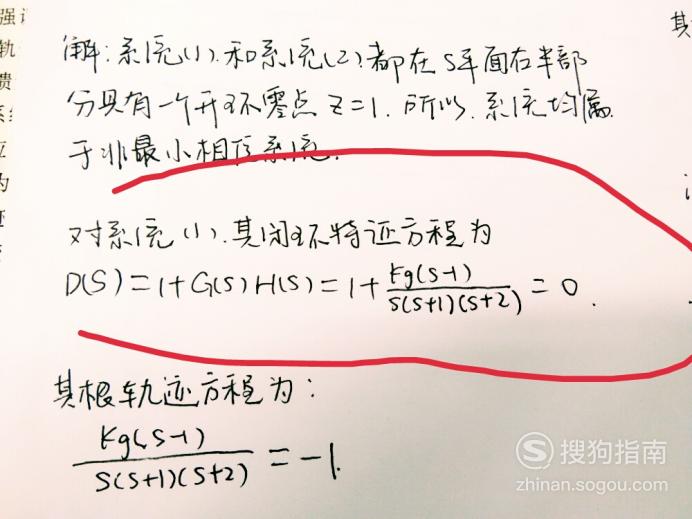 强
轨
馈
应
为
解:系统(1).和系统(2).都在S平面右半部
分具有一个开环零点 Z=1. 所以.系统均属
于非最小相位系统.
对系统(1).其闭环特证方程为
D(S)=1+G(S)H(S)=1+Kg(S-1)/S(S+1)(S+2)=0.
其根轨迹方程为:
Kg(S-1)/S(S+1)(S+2)=-1.
其
搜狗指南
zhinan.sogou.com